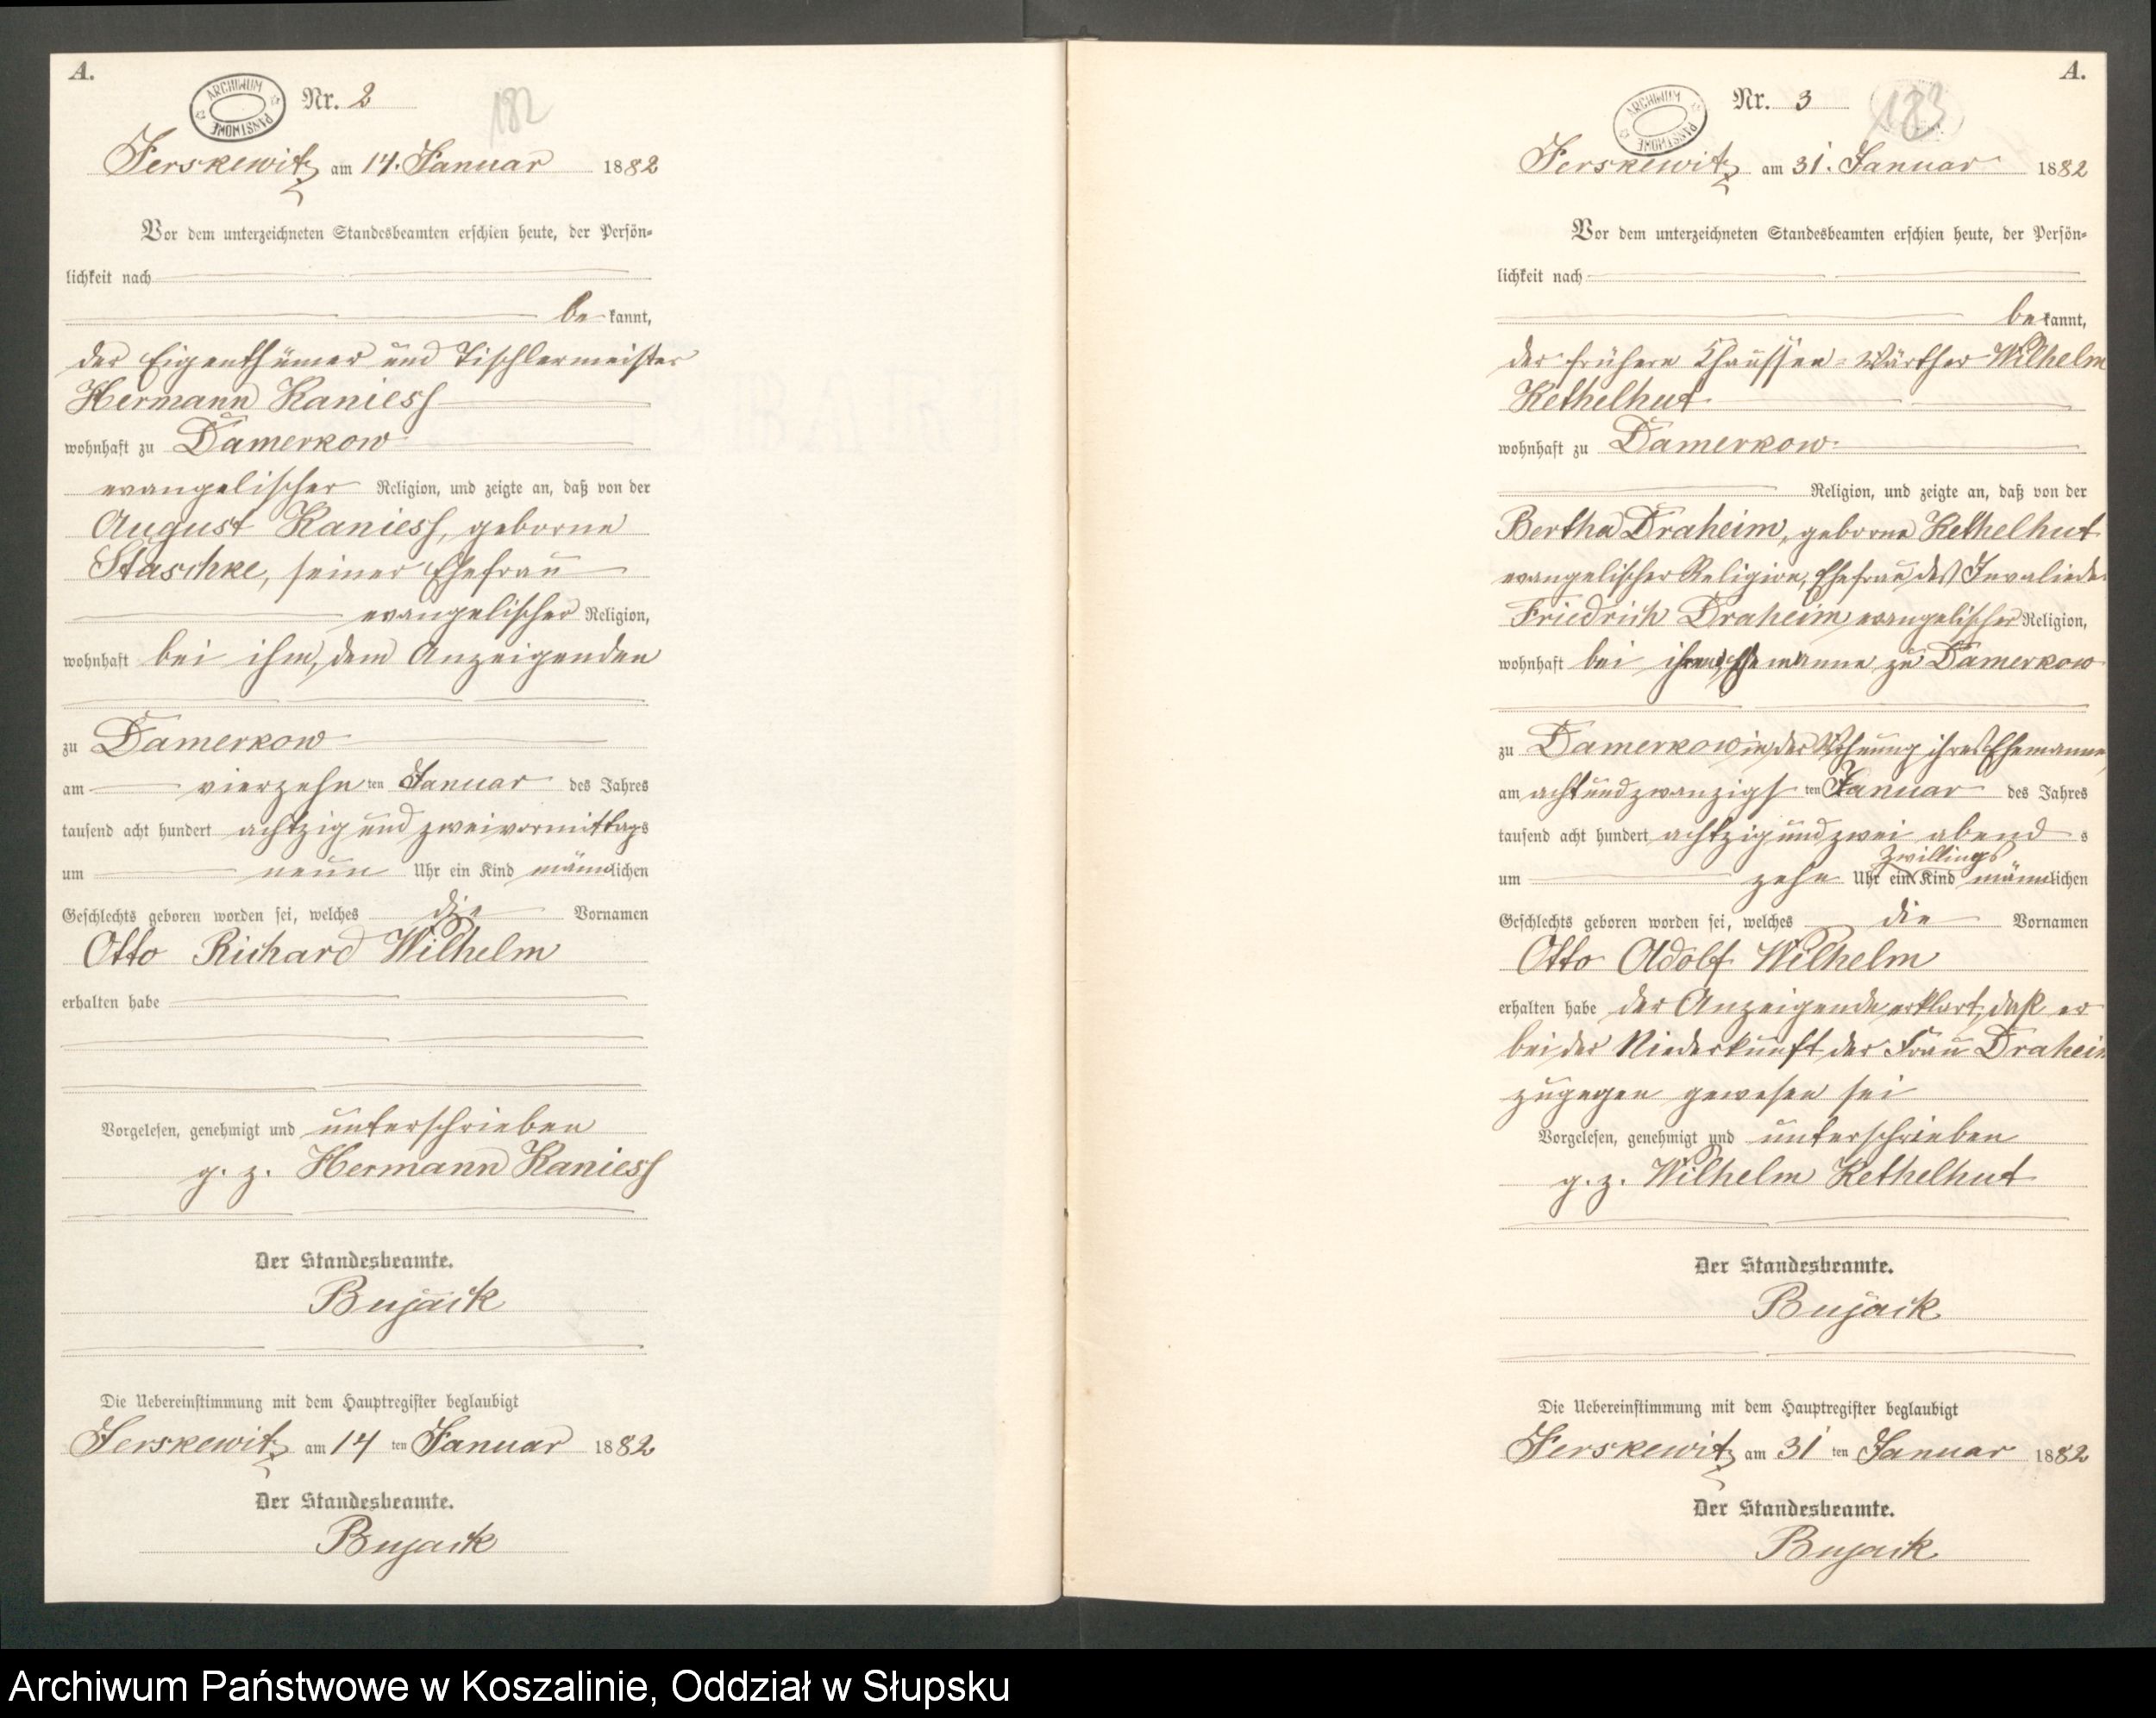 A.
ARCHIWUM PAŃSTWOWE
Nr. 2
182
Jerskewitz am 14. Januar 1882
Vor dem unterzeichneten Standesbeamten erschien heute, der Persön-
lichkeit nach
bekannt,
der Eigenthümer und Tischlermeister
Hermann Kaniess
wohnhaft zu Damerkow
evangelischer Religion, und zeigte an, daß von der
August Kaniess, geborne
Staschke, seiner Ehefrau
evangelischer Religion,
wohnhaft bei ihm, dem Anzeigenden
zu Damerkow
am vierzehn ten Januar des Jahres
tausend acht hundert achtzig und zwei vormittags
um neun Uhr ein Kind männlichen
Geschlechts geboren worden sei, welches die Vornamen
Otto Richard Wilhelm
erhalten habe
Vorgelesen, genehmigt und unterschrieben
g. z. Hermann Kaniess
Der Standesbeamte.
Bujack
Die Uebereinstimmung mit dem Hauptregister beglaubigt
Jerskewitz am 14 ten Januar 1882
Der Standesbeamte.
Bujack
A.
ARCHIWUM PAŃSTWOWE
Nr. 3
183
Jerskewitz am 31. Januar 1882
Vor dem unterzeichneten Standesbeamten erschien heute, der Persön-
lichkeit nach
bekannt,
der frühere Chaussee-Wärther Wilhelm
Kethelhut
wohnhaft zu Damerkow
Religion, und zeigte an, daß von der
Bertha Draheim, geborne Kethelhut
evangelischer Religion, Ehefrau des Invaliden
Friedrich Draheim evangelischer Religion,
wohnhaft bei ihrem Ehemanne zu Damerkow
zu Damerkow in der Wohnung ihres Ehemannes
am achtundzwanzigs ten Januar des Jahres
tausend acht hundert achtzig und zwei abends
Zwillings
um zehn Uhr ein Kind männlichen
Geschlechts geboren worden sei, welches die Vornamen
Otto Adolf Wilhelm
erhalten habe der Anzeigende erklärt, daß er
bei der Niederkunft der Frau Draheim
zugegen gewesen sei
Vorgelesen, genehmigt und unterschrieben
g. z. Wilhelm Kethelhut
Der Standesbeamte.
Bujack
Die Uebereinstimmung mit dem Hauptregister beglaubigt
Jerskewitz am 31 ten Januar 1882
Der Standesbeamte.
Bujack
Archiwum Państwowe w Koszalinie, Oddział w Słupsku